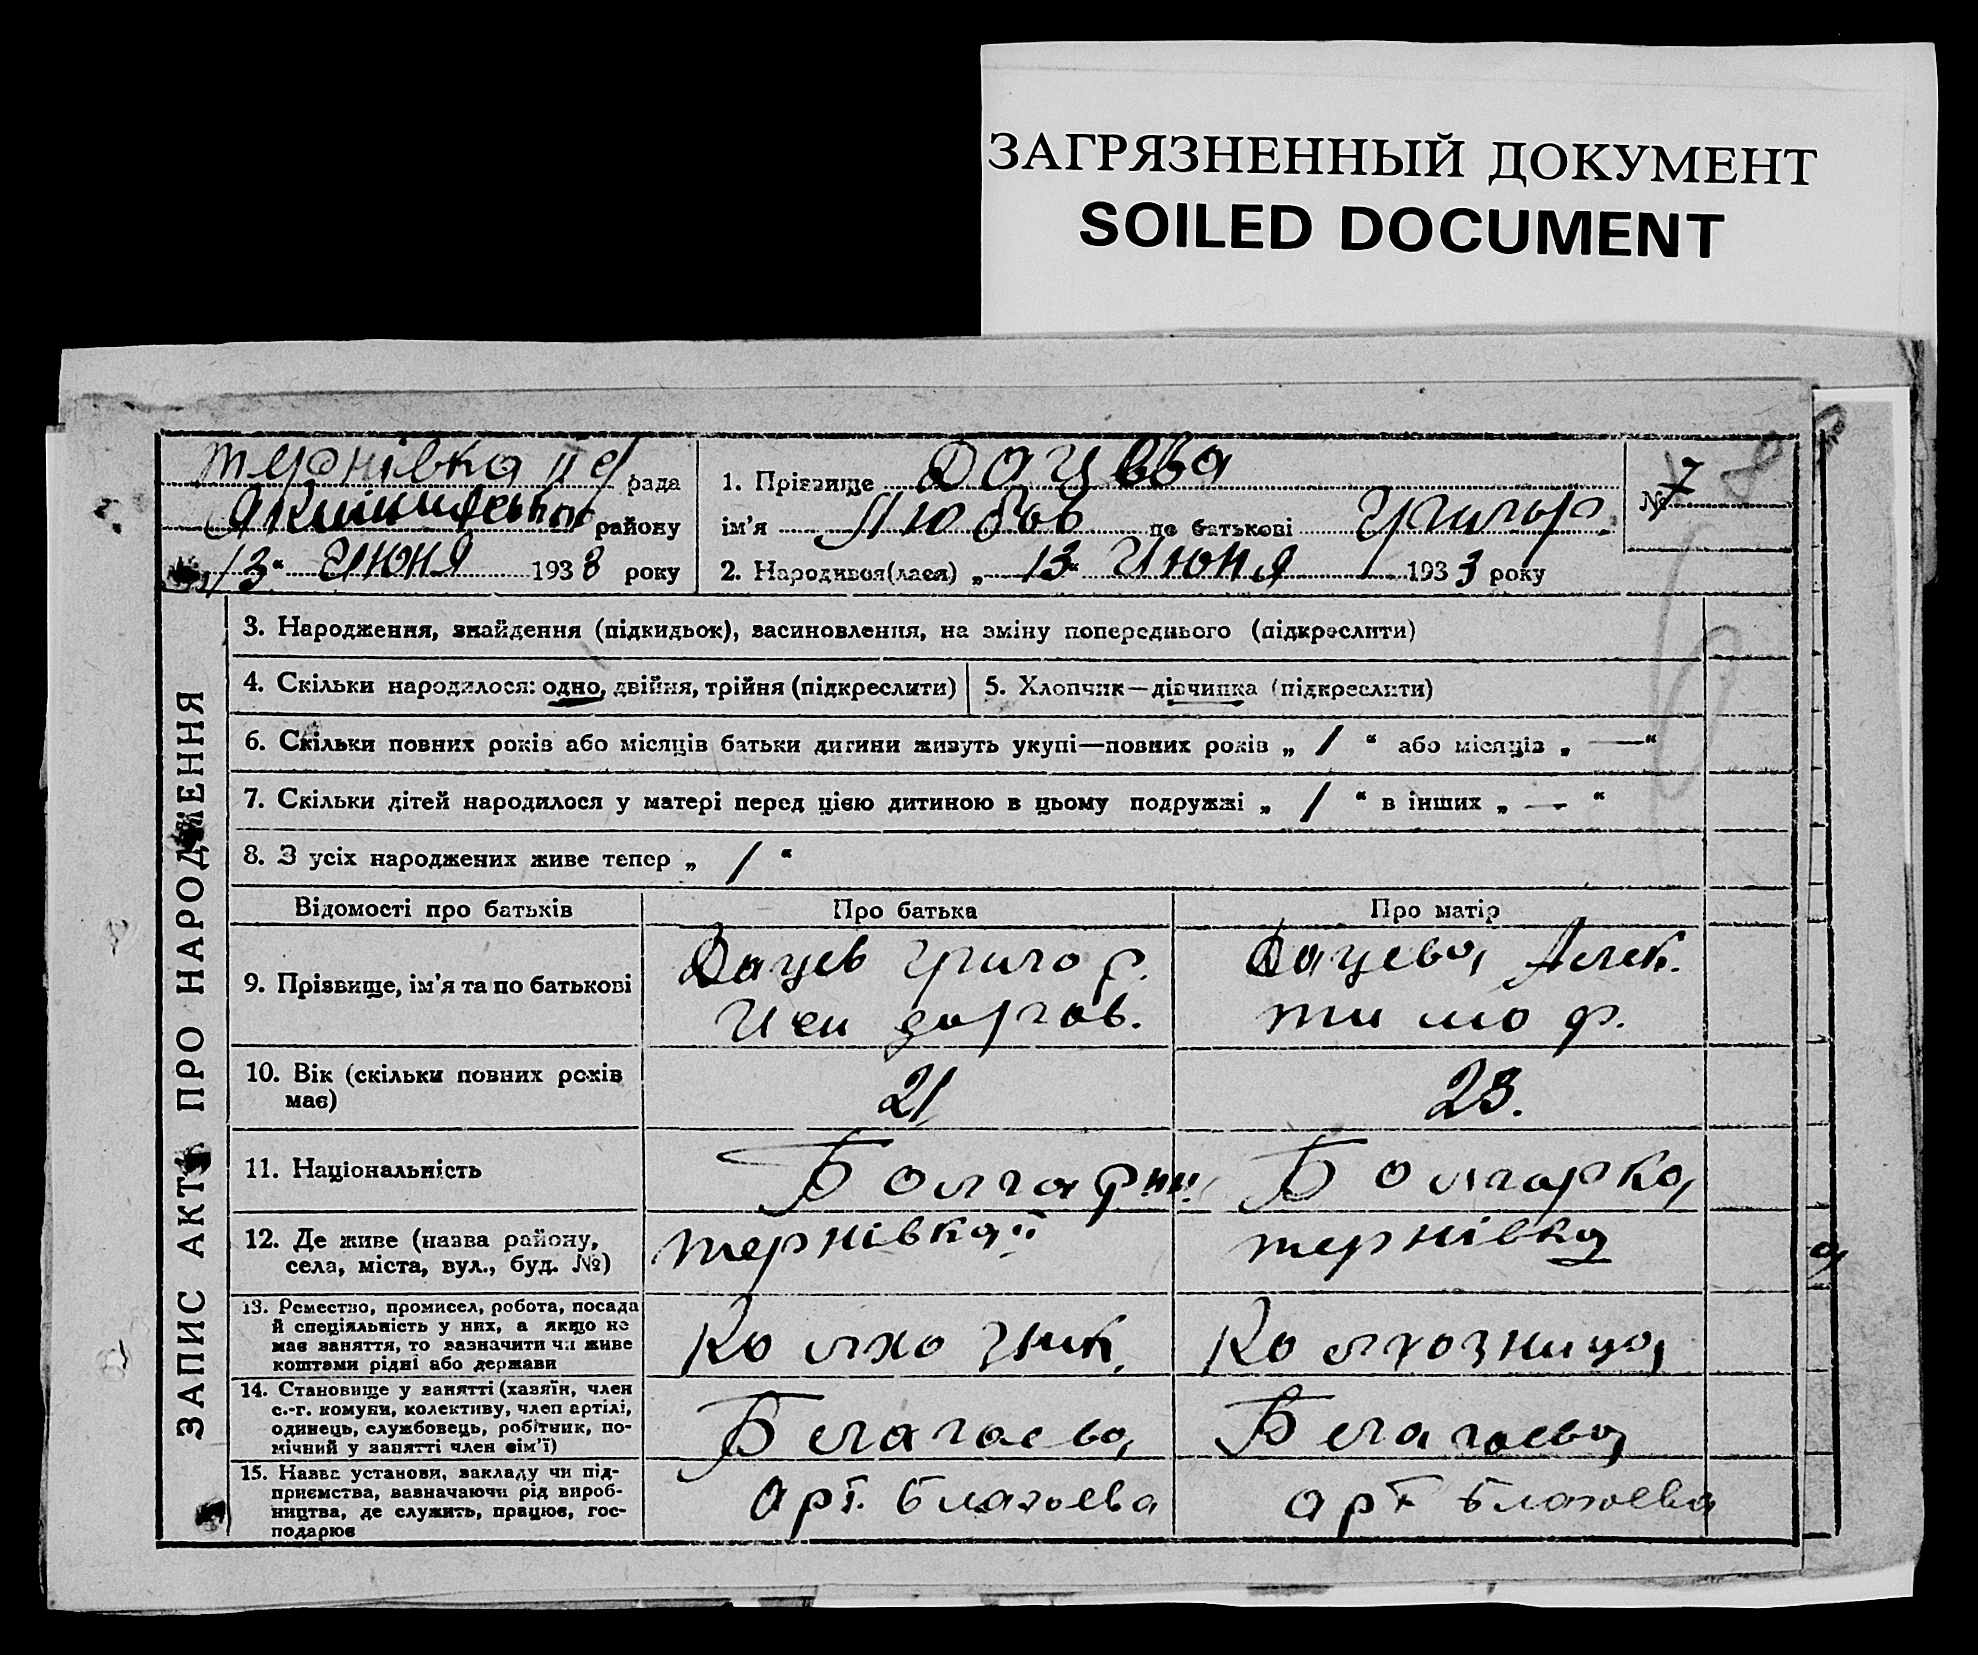 ЗАГРЯЗНЕННЫЙ ДОКУМЕНТ
SOILED DOCUMENT
ЗАПИС АКТУ ПРО НАРОДЖЕННЯ
тернівка рада
району
13 Июня 1938 року
1. Прізвище Дацева
ім'я Любов по батькові Григор.
2. Народився(лася) „13“ Июня 1933 року
№ 7
3. Народження, знайдення (підкидьок), засиновлення, на зміну попереднього (підкреслити)
4. Скільки народилося: одно, двійня, трійня (підкреслити)
5. Хлопчик—дівчинка (підкреслити)
6. Скільки повних років або місяців батьки дитини живуть укупі—повних років „ 1 “ або місяців „ — “
7. Скільки дітей народилося у матері перед цією дитиною в цьому подружжі „ 1 “ в інших „ — “
8. З усіх народжених живе тепер „ 1 “
Відомості про батьків
Про батька
Про матір
9. Прізвище, ім'я та по батькові
Дацев Григор.
Дацева, Алек.
тимоф.
10. Вік (скільки повних років
має)
21
23.
11. Національність
Болгарин
Болгарка
12. Де живе (назва району,
села, міста, вул., буд. №)
тернівка
тернівка
13. Ремество, промисел, робота, посада
й спеціяльність у них, а якщо не
має заняття, то зазначити чи живе
коштами рідні або держави
Колхозник,
Колхозница,
14. Становище у занятті (хазяїн, член
с.-г. комуни, колективу, член артілі,
одинець, службовець, робітник, по-
мічний у занятті член сім'ї)
Благоева,
Благоева
15. Назва установи, закладу чи під-
приємства, зазначаючи рід вироб-
ництва, де служить, працює, гос-
подарює
Арт. Благоева
арт Благоева